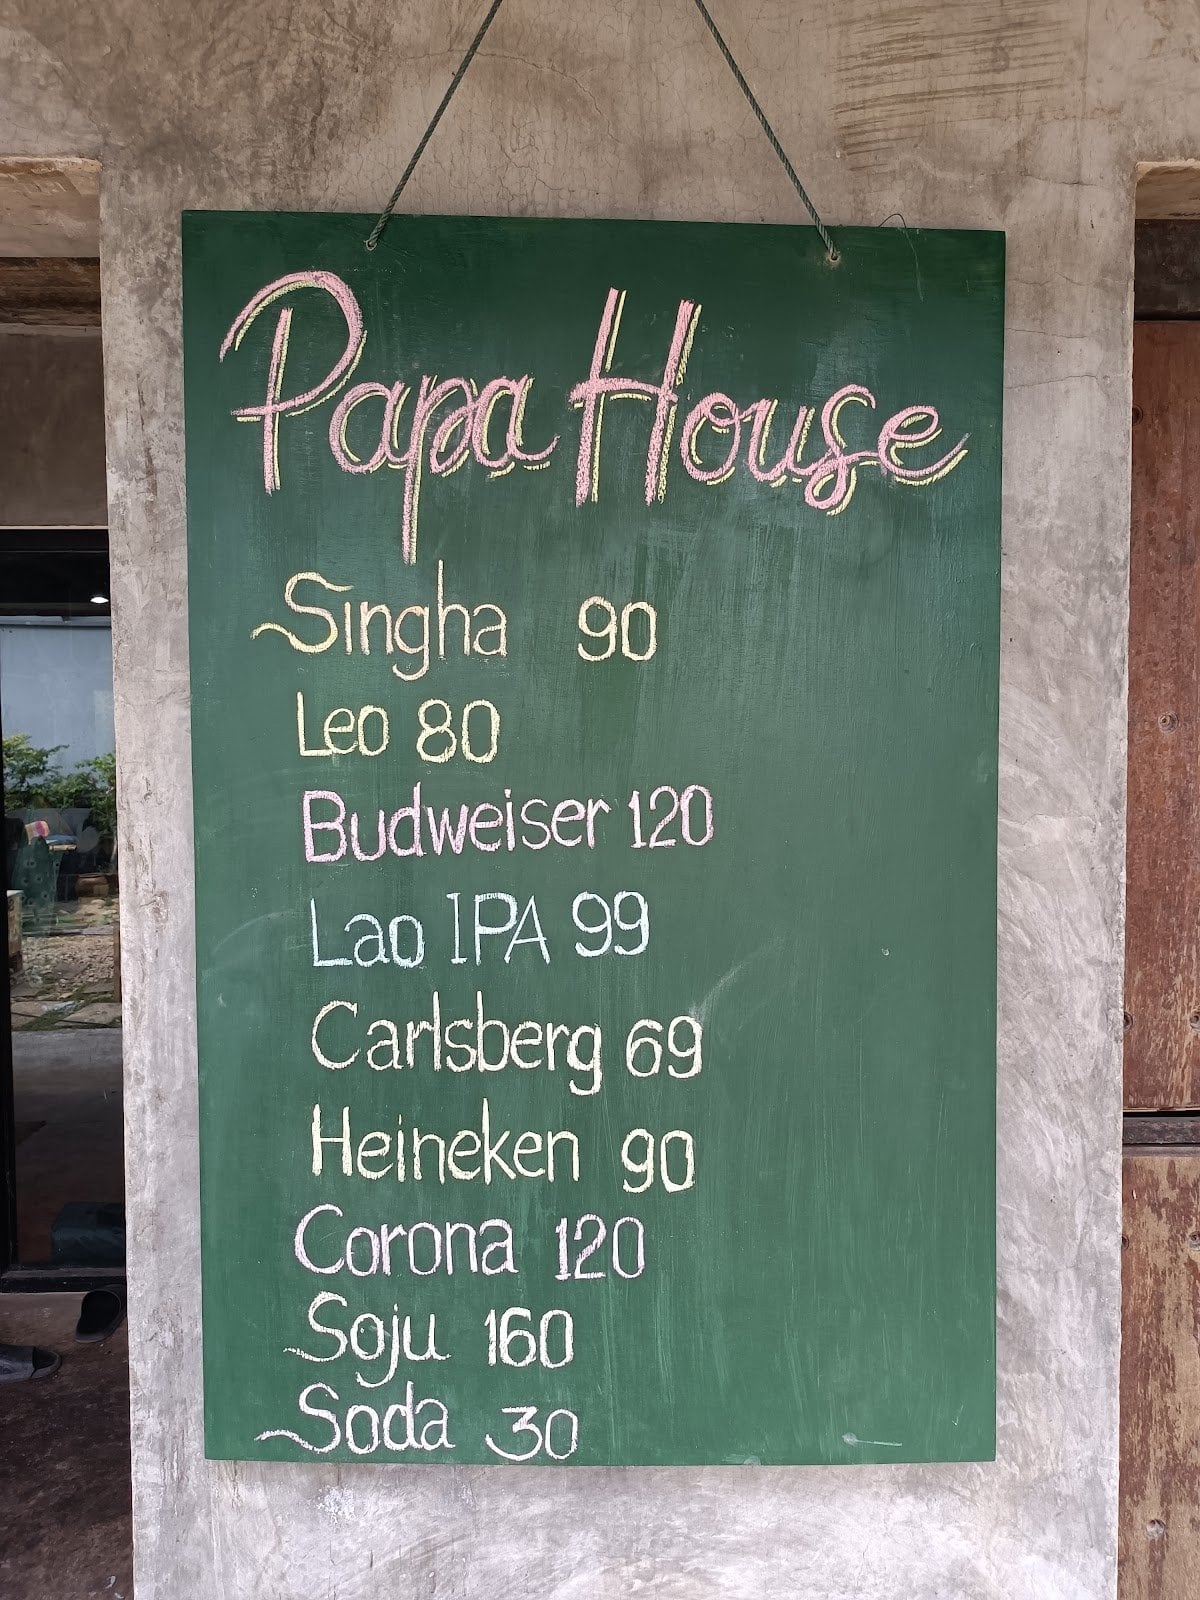 Papa House
Singha 90
Leo 80
Budweiser 120
Lao IPA 99
Carlsberg 69
Heineken 90
Corona 120
Soju 160
Soda 30